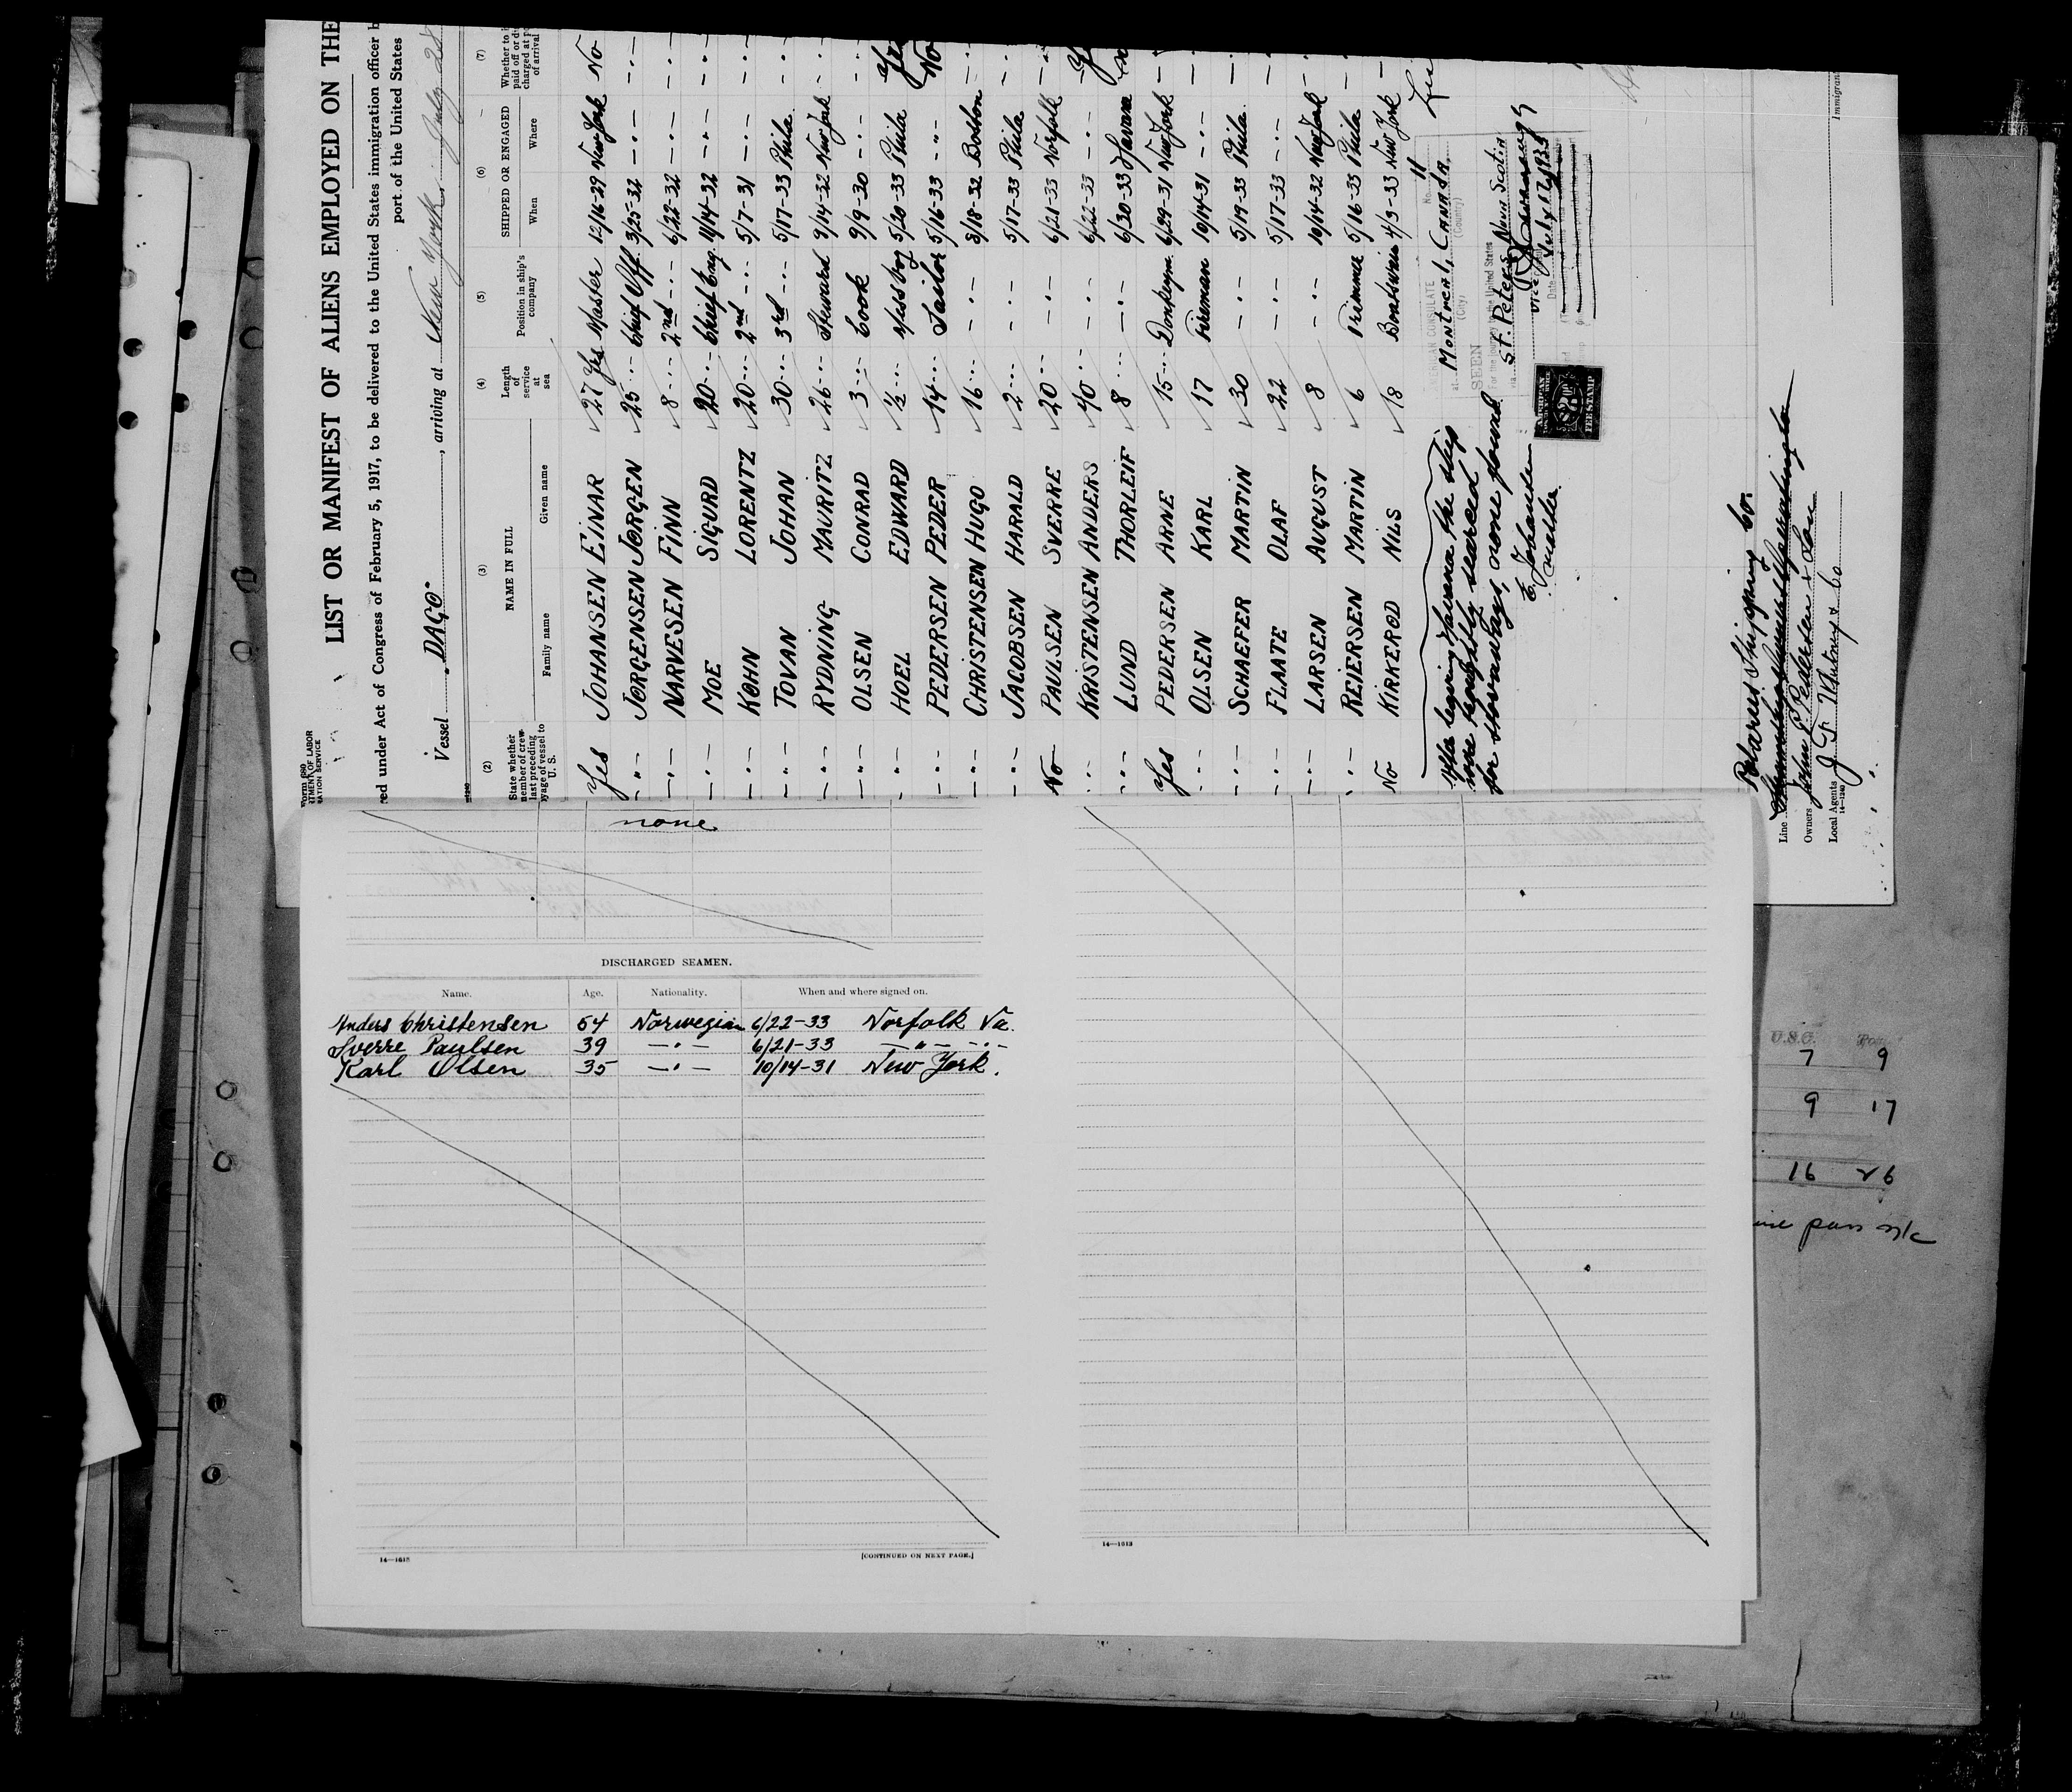 Form 680
LIST OR MANIFEST OF ALIENS EMPLOYED ON THE
red under Act of Congress of February 5, 1917, to be delivered to the United States immigration officer
port of the United States
Vessel "DAGO" , arriving at New York July 28
(2) (3) (4) (5) (6) (7)
State whether member of crew last preceding voyage of vessel to U. S. NAME IN FULL Length of service at sea Position in ship's company SHIPPED OR ENGAGED
Family name Given name When Where
Yes JOHANSEN EINAR 27 Yrs Master 12/16-29 New York No
-"- JØRGENSEN JØRGEN 25 -"- Chief Off. 3/25-32 -"- -"-
-"- NARVESEN FINN 8 -"- 2nd -"- 6/22-32 -"- -"-
-"- MOE SIGURD 20 -"- Chief Eng. 11/14-32 -"- -"-
-"- KØHN LORENTZ 20 -"- 2nd -"- 5/7-31 -"- -"-
-"- TOVAN JOHAN 30 -"- 3rd -"- 5/17-33 Phila. -"-
-"- RYDNING MAURITZ 26 -"- Steward 9/14-32 New York -"-
-"- OLSEN CONRAD 3 -"- Cook 9/9-30 -"- -"-
-"- HOEL EDWARD ½ -"- Messboy 5/20-33 Phila Yes
-"- PEDERSEN PEDER 14 -"- Sailor 5/16-33 -"- No
-"- CHRISTENSEN HUGO 16 -"- -"- 3/18-32 Boston -"-
-"- JACOBSEN HARALD 2 -"- -"- 5/17-33 Phila -"-
No PAULSEN SVERRE 20 -"- -"- 6/21-33 Norfolk -"-
-"- KRISTENSEN ANDERS 40 -"- -"- 6/22-33 -"-
-"- LUND THORLEIF 8 -"- -"- 6/30-33 Havana
Yes PEDERSEN ARNE 15 -"- Donkeym. 6/29-31 New York -"-
-"- OLSEN KARL 17 Fireman 10/14-31 -"- -"-
-"- SCHAEFER MARTIN 30 -"- 5/19-33 Phila. -"-
-"- FLAATE OLAF 22 -"- 5/17-33 -"- -"-
-"- LARSEN AUGUST 8 -"- 10/14-32 New York -"-
-"- REIERSEN MARTIN 6 Trimmer 5/16-33 Phila -"-
No KIRKEROD NILS 18 Boatswain 4/3-33 New York -"-
After leaving Havana the ship
were roughly searced
for stowaways, none found.
E. Johansen
master
AMERICAN CONSULATE No. 11
at Montreal, Canada.
(City) (Country)
SEEN
For the journey to the United States
via St. Peters Nova Scotia
Vice
Date July 12 1933
AMERICAN
FEE STAMP
Line Baltares Shipping Co.
Owners John P. Pedersen & Son
Local Agents J. F. Whitney & Co
14—1240
none
DISCHARGED SEAMEN.
Name. Age. Nationality. When and where signed on.
Anders Christensen 54 Norwegian 6/22-33 Norfolk Va.
Sverre Paulsen 39 -"- 6/21-33 -"- -"-
Karl Olsen 35 -"- 10/14-31 New York.
14—1613 [CONTINUED ON NEXT PAGE.]
14—1613
U.S.C.
7 9
9 17
16 26